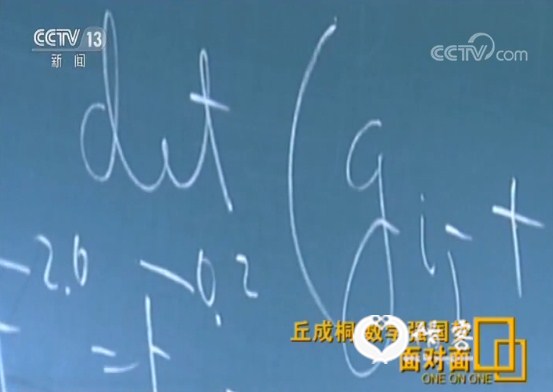 CCTV 13
新闻
CCTV.com
det (g i j̄ +
-2.0 -0.2
丘成桐 数学强国梦
面对面
ONE ON ONE